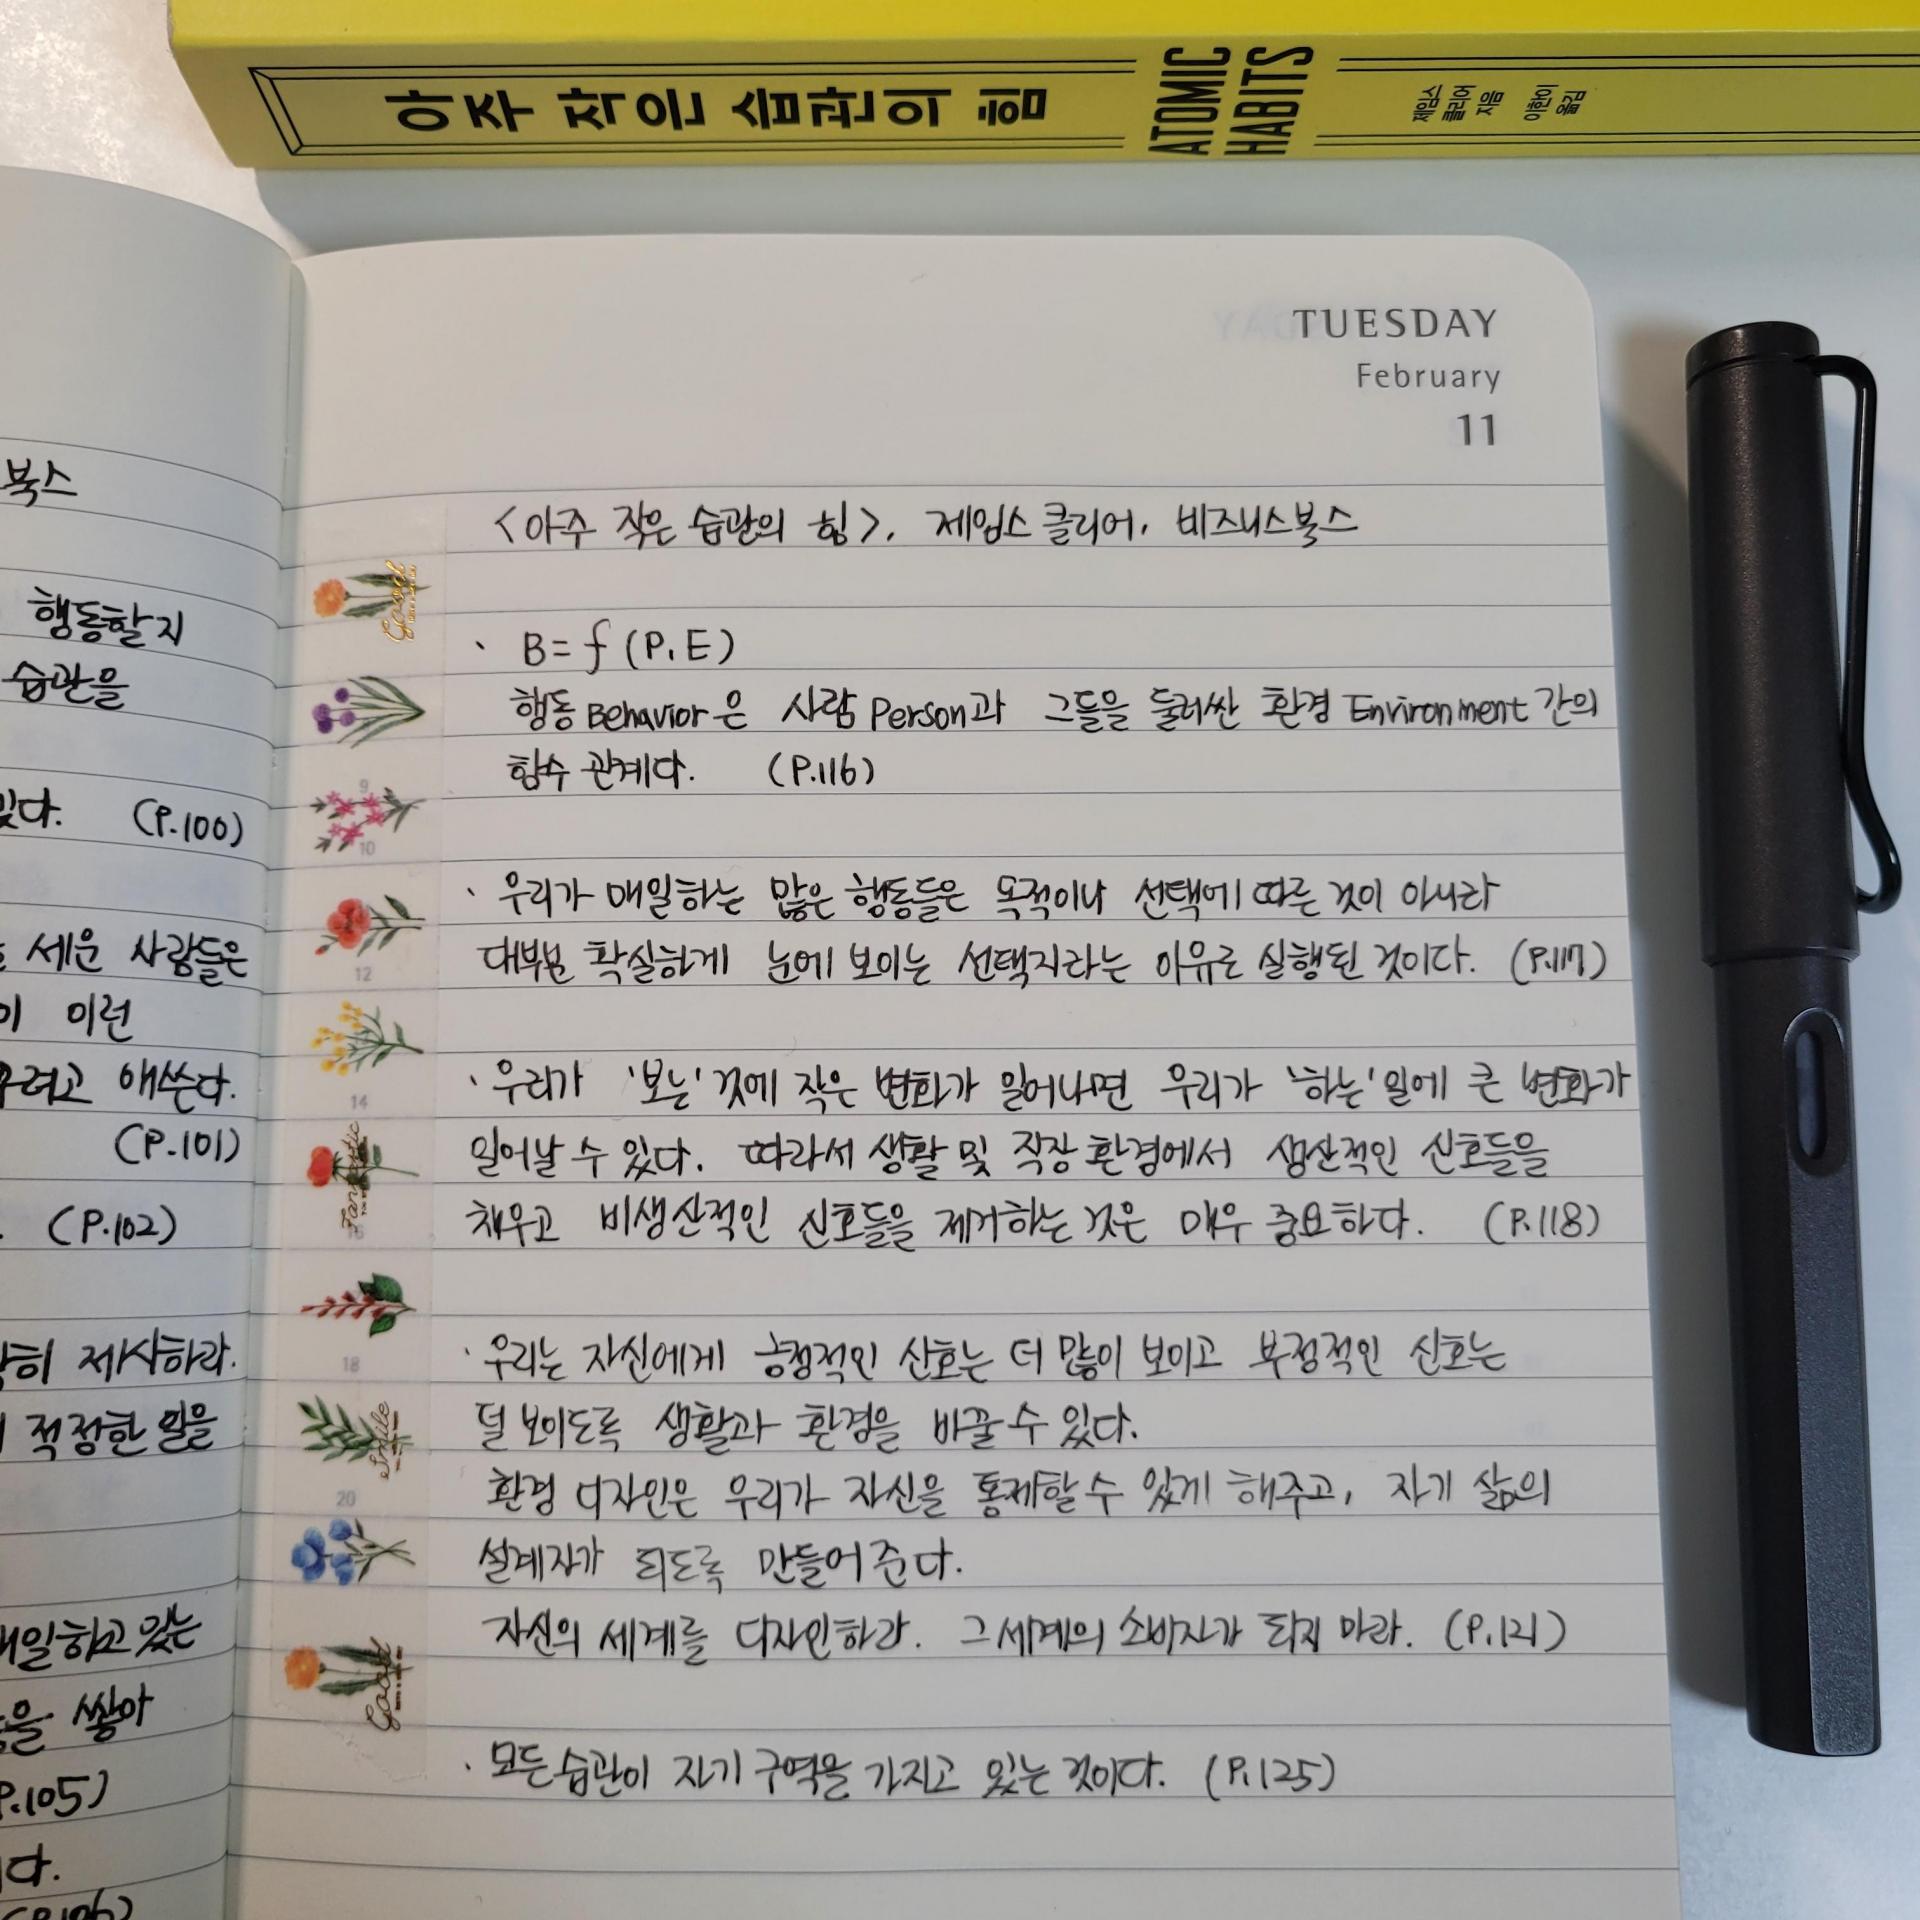 아주 작은 습관의 힘
ATOMIC
HABITS
제임스
클리어
지음
이한이
옮김
북스
행동할지
습관을
(P.100)
세운 사람들은
이런
애쓴다.
(P.101)
(P.102)
제시하라.
적정한 일을
쌓아
P.105)
TUESDAY
February
11
<아주 작은 습관의 힘>, 제임스 클리어, 비즈니스북스
· B = f (P, E)
행동 Behavior은 사람 Person과 그들을 둘러싼 환경 Environment 간의
함수 관계다. (P.116)
· 우리가 매일하는 많은 행동들은 목적이나 선택에 따른 것이 아니라
대부분 확실하게 눈에 보이는 선택지라는 이유로 실행된 것이다. (P.117)
· 우리가 '보는' 것에 작은 변화가 일어나면 우리가 '하는' 일에 큰 변화가
일어날 수 있다. 따라서 생활 및 직장 환경에서 생산적인 신호들을
채우고 비생산적인 신호들을 제거하는 것은 매우 중요하다. (P.118)
· 우리는 자신에게 긍정적인 신호는 더 많이 보이고 부정적인 신호는
덜 보이도록 생활과 환경을 바꿀 수 있다.
환경 디자인은 우리가 자신을 통제할 수 있게 해주고, 자기 삶의
설계자가 되도록 만들어 준다.
자신의 세계를 디자인하라. 그 세계의 소비자가 되지 마라. (P.121)
· 모든 습관이 자기 구역을 가지고 있는 것이다. (P.125)
9
10
12
14
16
18
20
Good
Fantastic
Smile
Good